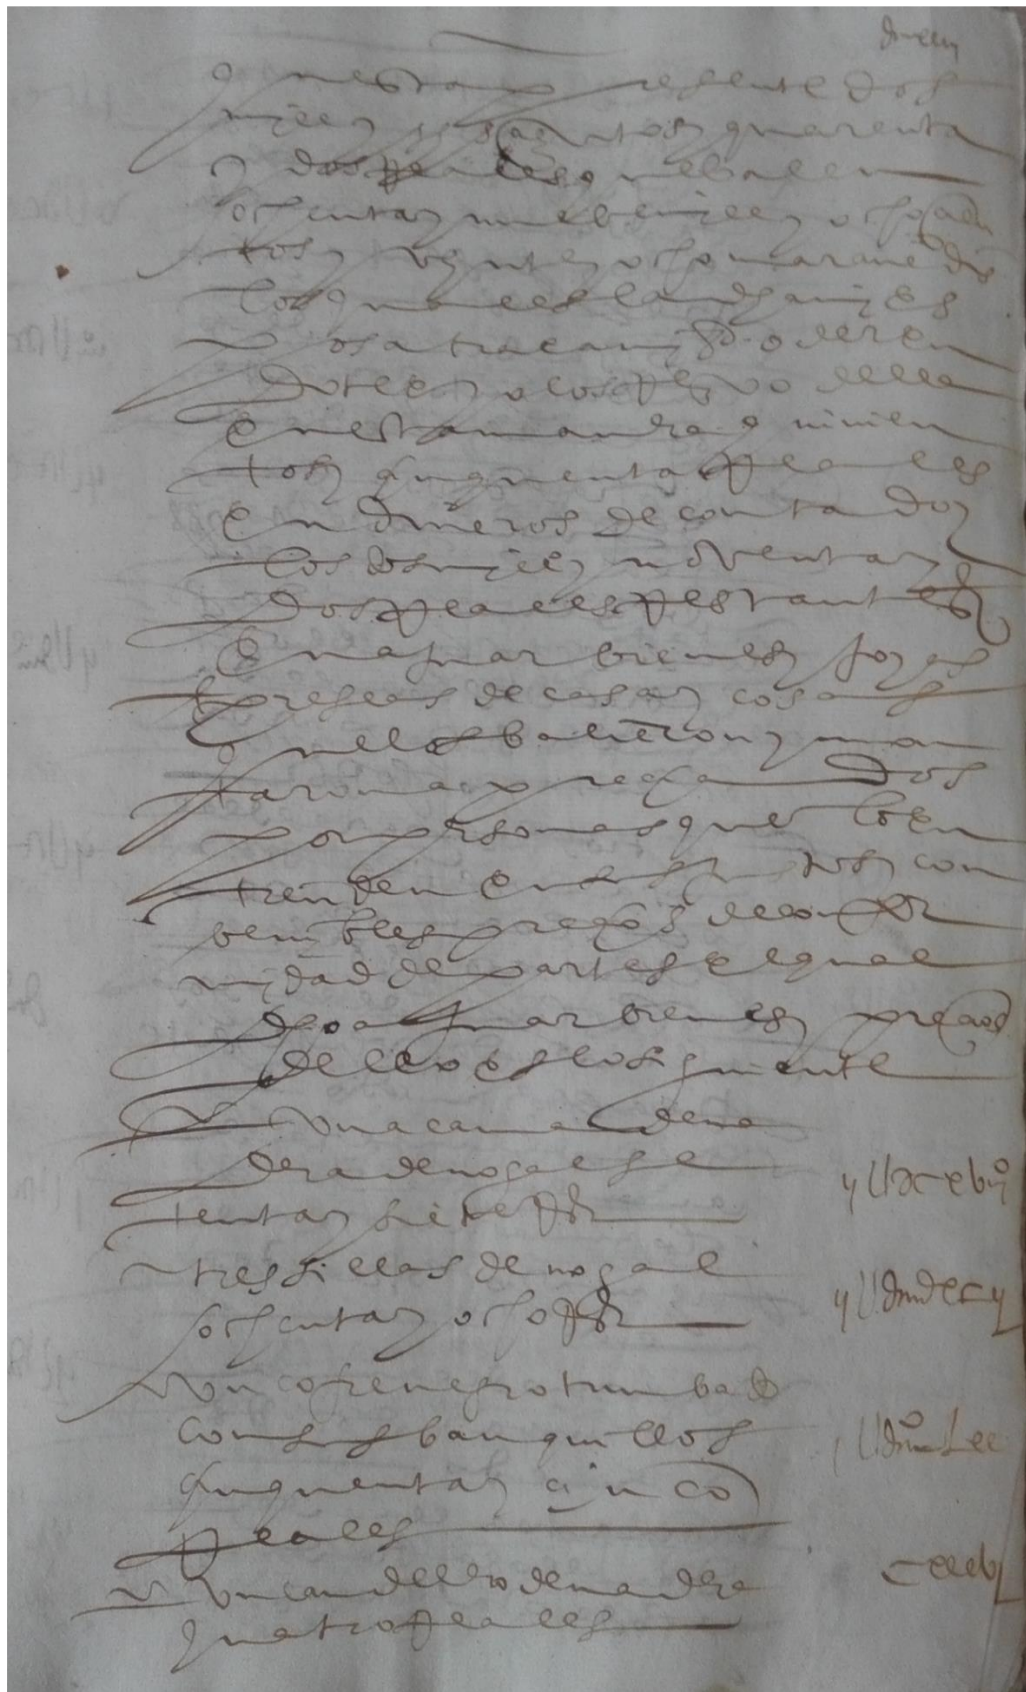 que esta presente dos
mill y seiscientos y quarenta
y dos reales que balen
ochenta y nuebe mill y ochocien
tos y veynte y ocho maravedis
los quales la dha mi es
posa trae a mi poder en
dote y a los della
en esta manera quinien
tos y cinquenta reales
en dineros de contado y
los dos mill y noventa y
dos reales restantes
en axuar bienes joyas
preseas de casa y cosas
que los balieron y mon
taron apreçiados
por personas que lo en
tienden en sus justos y con
benibles preçios de confor
midad de partes el qual
dho axuar bienes y preçios
dello es lo siguiente
una cama de ma
dera de nogal se
tenta y siete rs ijUdcxviijº
tres sillas de nogal
ochenta y ocho rs
un cofre negro tumbado
con sus banquillos
cinquenta y cinco
reales
un candelero de madera
quatro reales cxxxvj